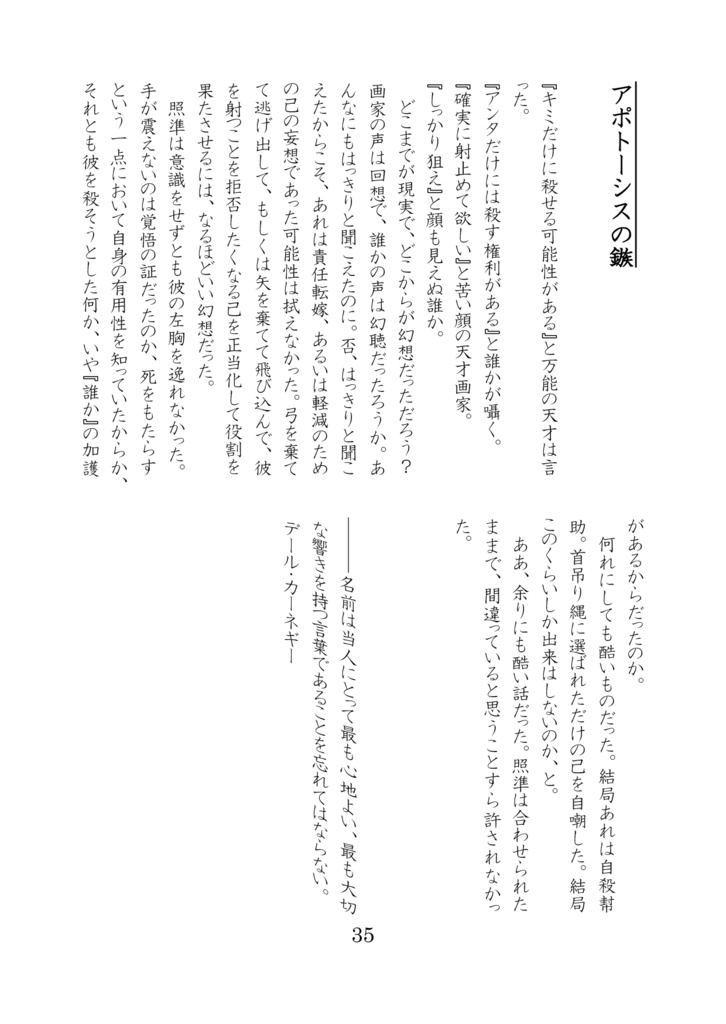 アポトーシスの鏃
『キミだけに殺せる可能性がある』と万能の天才は言
った。
『アンタだけには殺す権利がある』と誰かが囁く。
『確実に射止めて欲しい』と苦い顔の天才画家。
『しっかり狙え』と顔も見えぬ誰か。
　どこまでが現実で、どこからが幻想だっただろう？
画家の声は回想で、誰かの声は幻聴だったろうか。あ
んなにもはっきりと聞こえたのに。否、はっきりと聞こ
えたからこそ、あれは責任転嫁、あるいは軽減のため
の己の妄想であった可能性は拭えなかった。弓を棄て
て逃げ出して、もしくは矢を棄てて飛び込んで、彼
を射つことを拒否したくなる己を正当化して役割を
果たさせるには、なるほどいい幻想だった。
　照準は意識をせずとも彼の左胸を逸れなかった。
手が震えないのは覚悟の証だったのか、死をもたらす
という一点において自身の有用性を知っていたからか、
それとも彼を殺そうとした何か、いや『誰か』の加護
があるからだったのか。
　何れにしても酷いものだった。結局あれは自殺幇
助。首吊り縄に選ばれただけの己を自嘲した。結局
このくらいしか出来はしないのか、と。
　ああ、余りにも酷い話だった。照準は合わせられた
ままで、間違っていると思うことすら許されなかっ
た。
――名前は当人にとって最も心地よい、最も大切
な響きを持つ言葉であることを忘れてはならない。
デール・カーネギー
35